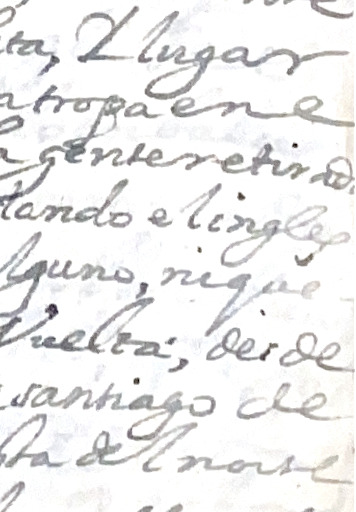 ta, Y lugar
a tropa en e
a gente retirad
tando el ingles
lguno, ni que
Vuelta; desde
santiago de
sta del norte